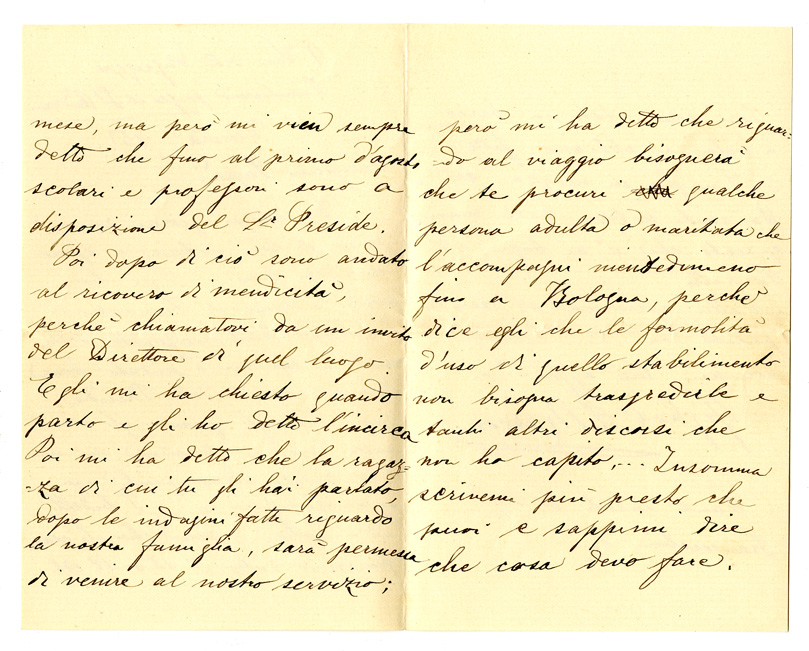 mese, ma però mi vien sempre
detto che fino al primo d'agosto
scolari e professori sono a
disposizione del Sr. Preside.
Poi dopo di ciò sono andato
al ricovero di mendicità,
perchè chiamatovi da un invito
del Direttore di quel luogo.
Egli mi ha chiesto quando
parto e gli ho detto l'incirca
Poi mi ha detto che la ragaz=
=za di cui tu gli hai parlato,
dopo le indagini fatte riguardo
la nostra famiglia, sarà permessa
di venire al nostro servizio;
però mi ha detto che riguar=
=do al viaggio bisognerà
che te procuri qualche
persona adulta o maritata che
l'accompagni nientedimeno
fino a Bologna, perchè
dice egli che le formolità
d'uso di quello stabilimento
non bisogna trasgredirle e
tanti altri discorsi che
non ho capito,... Insomma
scrivemi più presto che
puoi e sappimi dire
che cosa devo fare.